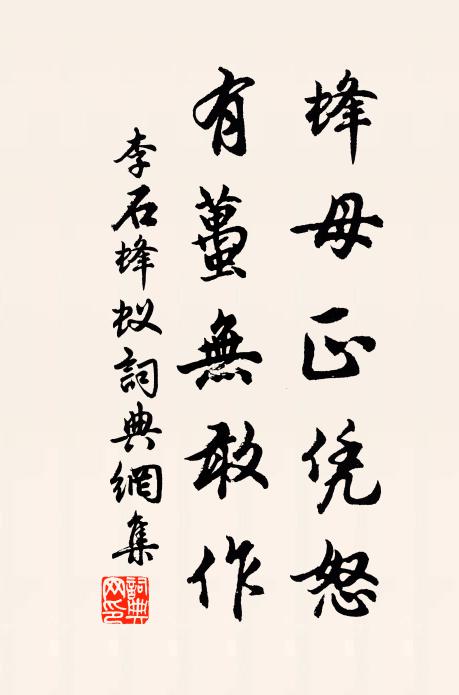 蜂母正凭怒
有虿無敢作
李石蜂蚁詞典網集
詞典网印